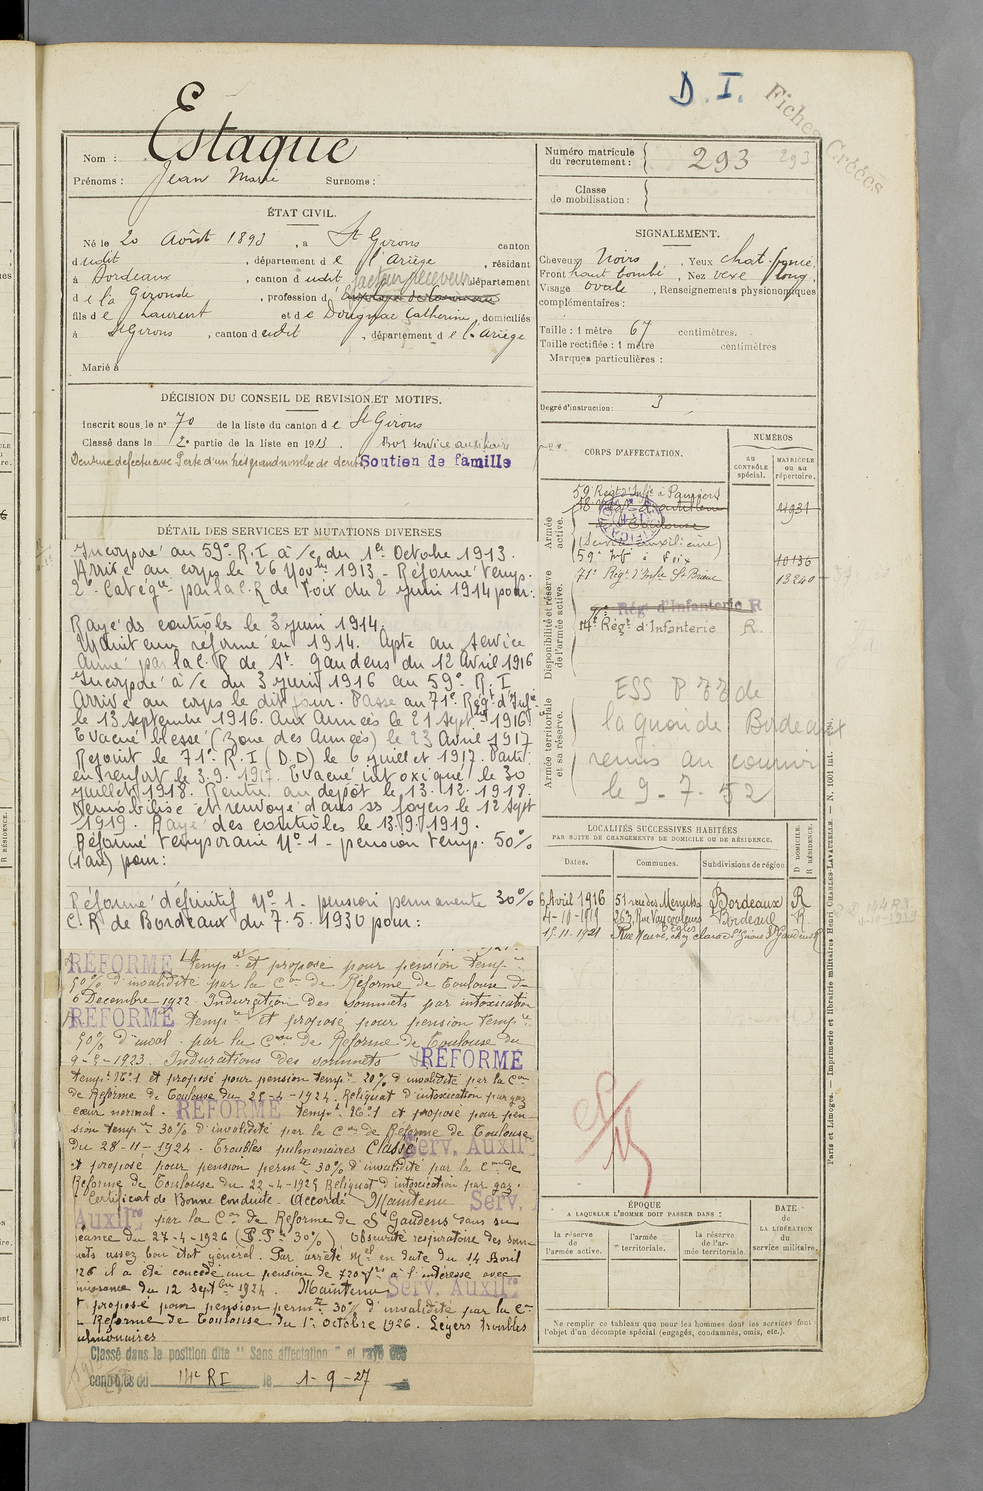 D. I.
Fiches Créées
Nom : Estaque
Prénoms : Jean Marie Surnoms :
Numéro matricule du recrutement : 293 293
Classe de mobilisation :
ÉTAT CIVIL.
Né le 20 Août 1893, à St Girons canton
dudit, département de l'Ariège, résidant
à Bordeaux, canton dudit, département
de la Gironde, profession d facteur receveur
fils de Laurent et de Dougnac Catherine, domiciliés
à St Girons, canton dudit, département de l'Ariège
Marié à
SIGNALEMENT.
Cheveux Noirs, Yeux chat. foncé,
Front haut bombé, Nez vexe long,
Visage ovale, Renseignements physionomiques
complémentaires :
Taille : 1 mètre 67 centimètres.
Taille rectifiée : 1 mètre centimètres
Marques particulières :
Degré d'instruction : 3
DÉCISION DU CONSEIL DE REVISION ET MOTIFS.
Inscrit sous le no 70 de la liste du canton de St Girons
Classé dans la 2e partie de la liste en 1913. Bon service auxiliaire
Denture défectueuse Perte d'un très grand nombre de dents Soutien de famille
DÉTAIL DES SERVICES ET MUTATIONS DIVERSES
Incorporé au 59e R.I à /c du 1er Octobre 1913.
Arrivé au corps le 26 Novbre 1913. Réformé temp.
2e Catégie par la C. R de Foix du 2 juin 1914 pour :
Rayé ds contrôles le 3 juin 1914.
Maintenu réformé en 1914. Apte au service
armé par la C. R de St Gaudens du 12 Avril 1916
Incorporé à /c du 3 juin 1916 au 59e R. I
Arrivé au corps le dit jour. Passé au 71e Régt d'Infie
le 13 Septembre 1916. Aux Armées le 21 Septbre 1916
Evacué blessé (zone des Armées) le 23 Avril 1917
Rejoint le 71e R.I (D.D) le 6 juillet 1917. Parti
en renfort le 3.9.1917. Evacué intoxiqué le 30
juillet 1918. Rentré au dépôt le 13.12.1918.
Démobilisé et renvoyé dans ss foyers le 12 Sept
1919. Rayé des contrôles le 13.9.1919.
Réformé temporaire No 1 - pension temp. 50%
(1 an) pour :
Réformé définitif No 1 - pension permanente 30%
C. R de Bordeaux du 7.5.1930 pour :
RÉFORMÉ tempre et proposé pour pension tempre
50% d'invalidité par la Con de Réforme de Toulouse du
6 Decembre 1922. Induration des sommets par intoxication
RÉFORMÉ tempre et proposé pour pension tempre
50% d'inval. par la Con de Réforme de Toulouse du
1923. Indurations des sommets RÉFORMÉ
tempre No 1 et proposé pour pension tempre 20% d'invalidité par la Con
de Réforme de Toulouse du 1924. Reliquat d'intoxication par gaz
cœur normal. RÉFORMÉ tempre No 1 et proposé pour pen-
sion tempre 30% d'invalidité par la Con de Réforme de Toulouse
du 28-11-1924. Troubles pulmonaires Classé Serv. Auxilre
et proposé pour pension permte 30% d'invalidité par la Con de
Réforme de Toulouse du 22-4-1925 Reliquat d'intoxication par gaz.
Certificat de Bonne Conduite. Accordé Maintenu Serv.
Auxilre par la Con de Réforme de St Gaudens dans sa
séance du 27-4-1926 (P.P. 30%) Obscurité respiratoire des som-
mets assez bon état général. Par arrêté Mel en date du 14 Avril
26 il a été concédé une pension de 720 frs à l'intéressé avec
jouissance du 12 Septbre 1924. Maintenu Serv. Auxilre
et proposé pour pension permte 30% d'invalidité par la Con
Réforme de Toulouse du 1er Octobre 1926. Légers troubles
pulmonaires
Classé dans la position dite " Sans affectation " et rayé des
contrôles du 14e RI le 1-9-27
CORPS D'AFFECTATION.
NUMÉROS
AU CONTRÔLE spécial.
MATRICULE ou au répertoire.
Armée active.
59e Régt d'Infie à Pamiers
11931
(Service auxiliaire)
59e Inf à Foix 10136
71e Régt d'Infie St Brieuc 13240
Disponibilité et réserve de l'armée active.
Rég. d'Infanterie R
14e Régt d'Infanterie R.
Armée territoriale et sa réserve.
ESS P de
la guoi de Bordeaux
remis au courrier
le 9-7-52
LOCALITÉS SUCCESSIVES HABITÉES
PAR SUITE DE CHANGEMENTS DE DOMICILE OU DE RÉSIDENCE.
Dates. Communes. Subdivisions de région D DOMICILE. R RÉSIDENCE.
6 Avril 1916 51 rue des Menuts Bordeaux R
4-10-1919 263, Rue Vaucouleurs Bordeaux R
Bègles
15.11.1921 Rue Neuve, chez St Girons St Gaudens R
ÉPOQUE
A LAQUELLE L'HOMME DOIT PASSER DANS :
la réserve de l'armée active.
l'armée territoriale.
la réserve de l'armée territoriale.
DATE de LA LIBÉRATION du service militaire.
Ne remplir ce tableau que pour les hommes dont les services font
l'objet d'un décompte spécial (engagés, condamnés, omis, etc.).
Paris et Limoges. — Imprimerie et librairie militaires Henri CHARLES-LAVAUZELLE. — N. 1001 int.